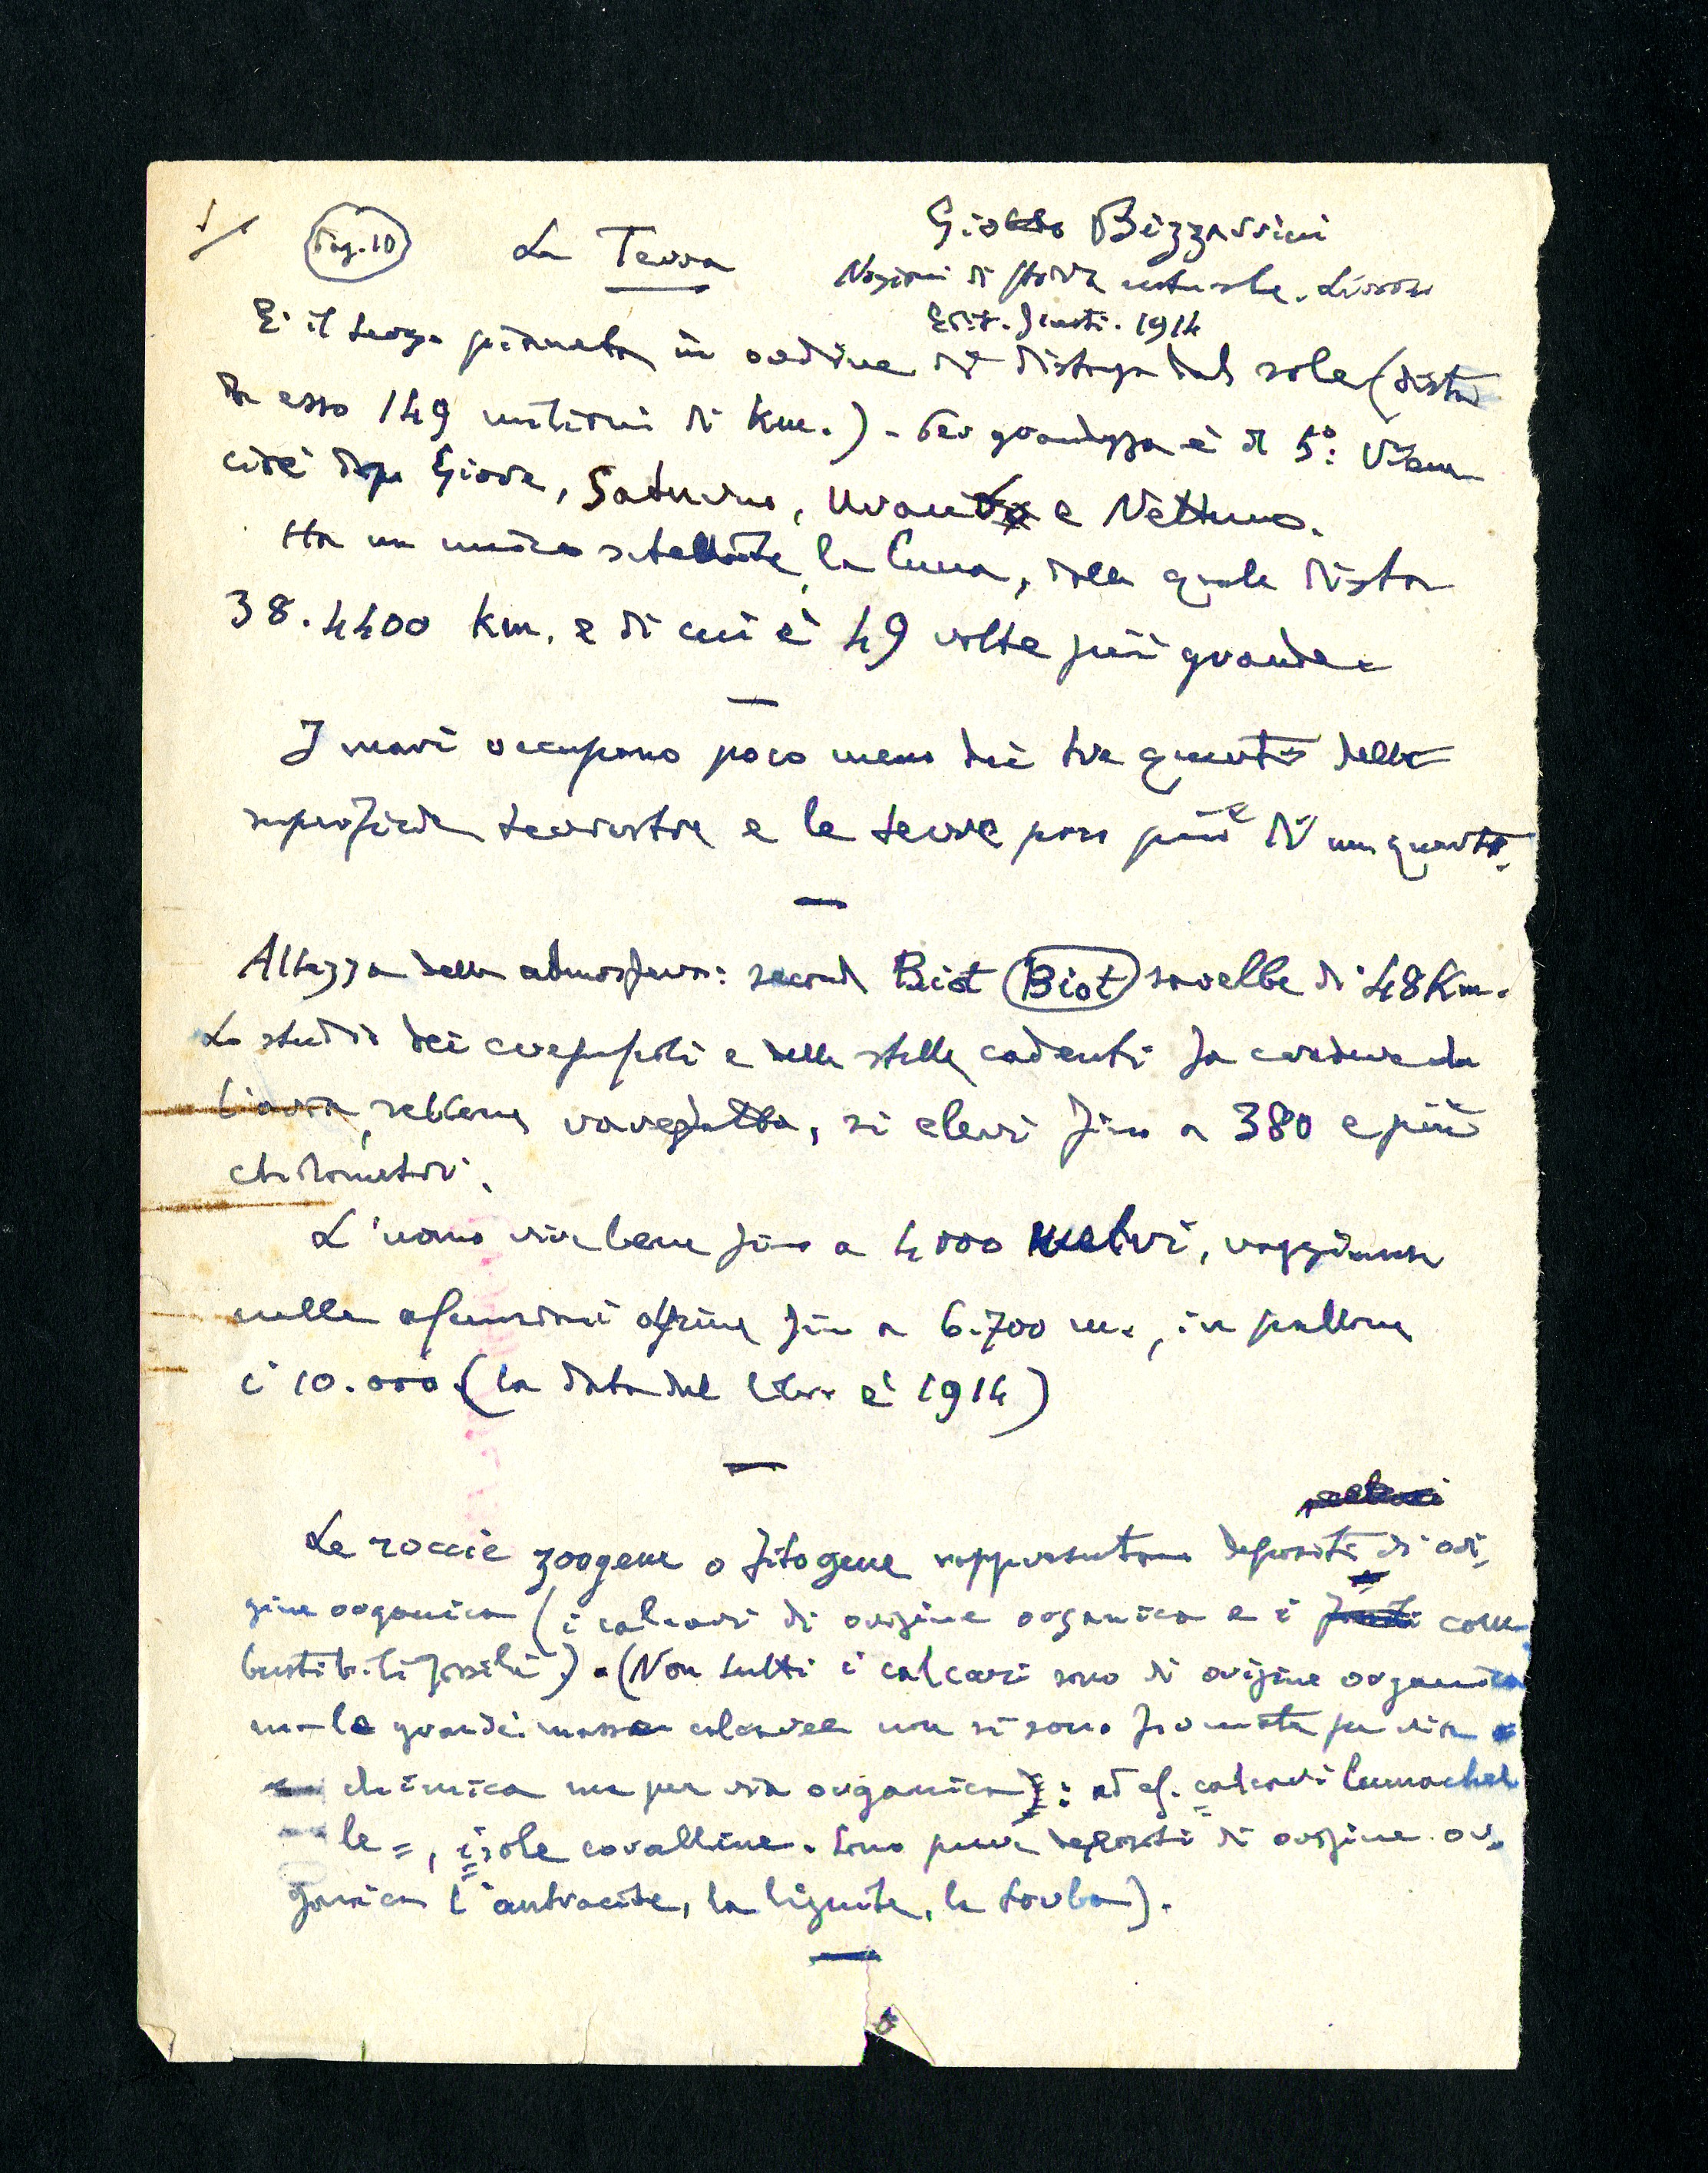 1/ Pag. 10 La Terra Giotto Bizzarrini
Nozioni di storia naturale. Livorno
Edit. Giusti. 1914
E' il terzo pianeta in ordine di distanza dal sole (dista
da esso 149 milioni di Km.) - Per grandezza è il 5°: Viene
cioè dopo Giove, Saturno, Urano e Nettuno.
Ha un unico satellite, la luna, dalla quale dista
38.4400 Km. e di cui è 49 volte più grande.
I mari occupano poco meno dei tre quarti della
superficie terrestre e le terre poco più di un quarto.
Altezza della atmosfera: secondo Biot (Biot) sarebbe di 48 Km.
Lo studio dei crepuscoli e delle stelle cadenti fa credere che
l'aria, sebbene rarefatta, si elevi fino a 380 e più
chilometri.
L'uomo vive bene fino a 4000 metri, raggiunse
nelle ascensioni alpine fin a 6.700 m., in pallone
i 10.000 (la data del libro è 1914)
Le roccie zoogene o fitogene rappresentano depositi di ori-
gine organica (i calcari di origine organica e i com-
bustibili fossili). (Non tutti i calcari sono di origine organica
ma le grandi masse calcaree non si sono formate per via
chimica ma per via organica): ad es. calcari lumachel
le =, isole coralline. Sono pure depositi di origine or-
ganica l'antracite, la lignite, la torba).